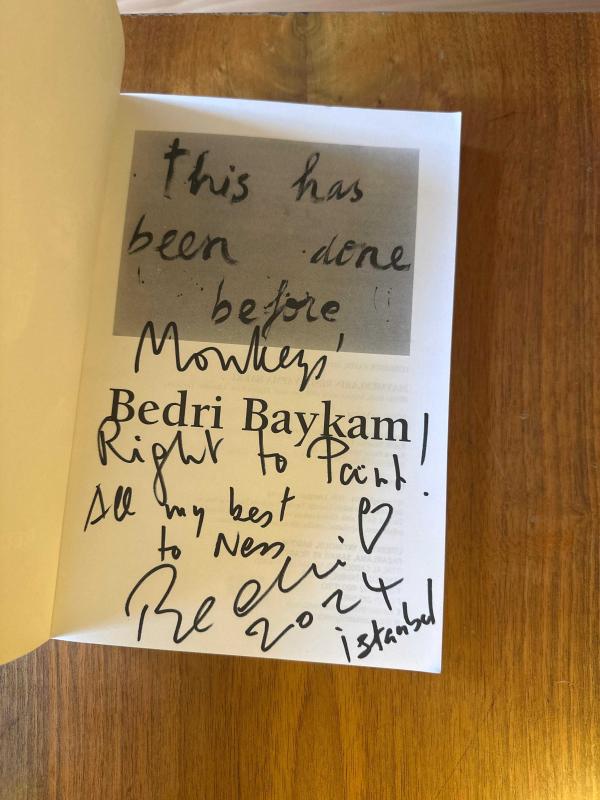 This has
been done
before
Monkeys'
Bedri Baykam
Right to Paint!
All my best
to Ness
Bedri
2024
istanbul